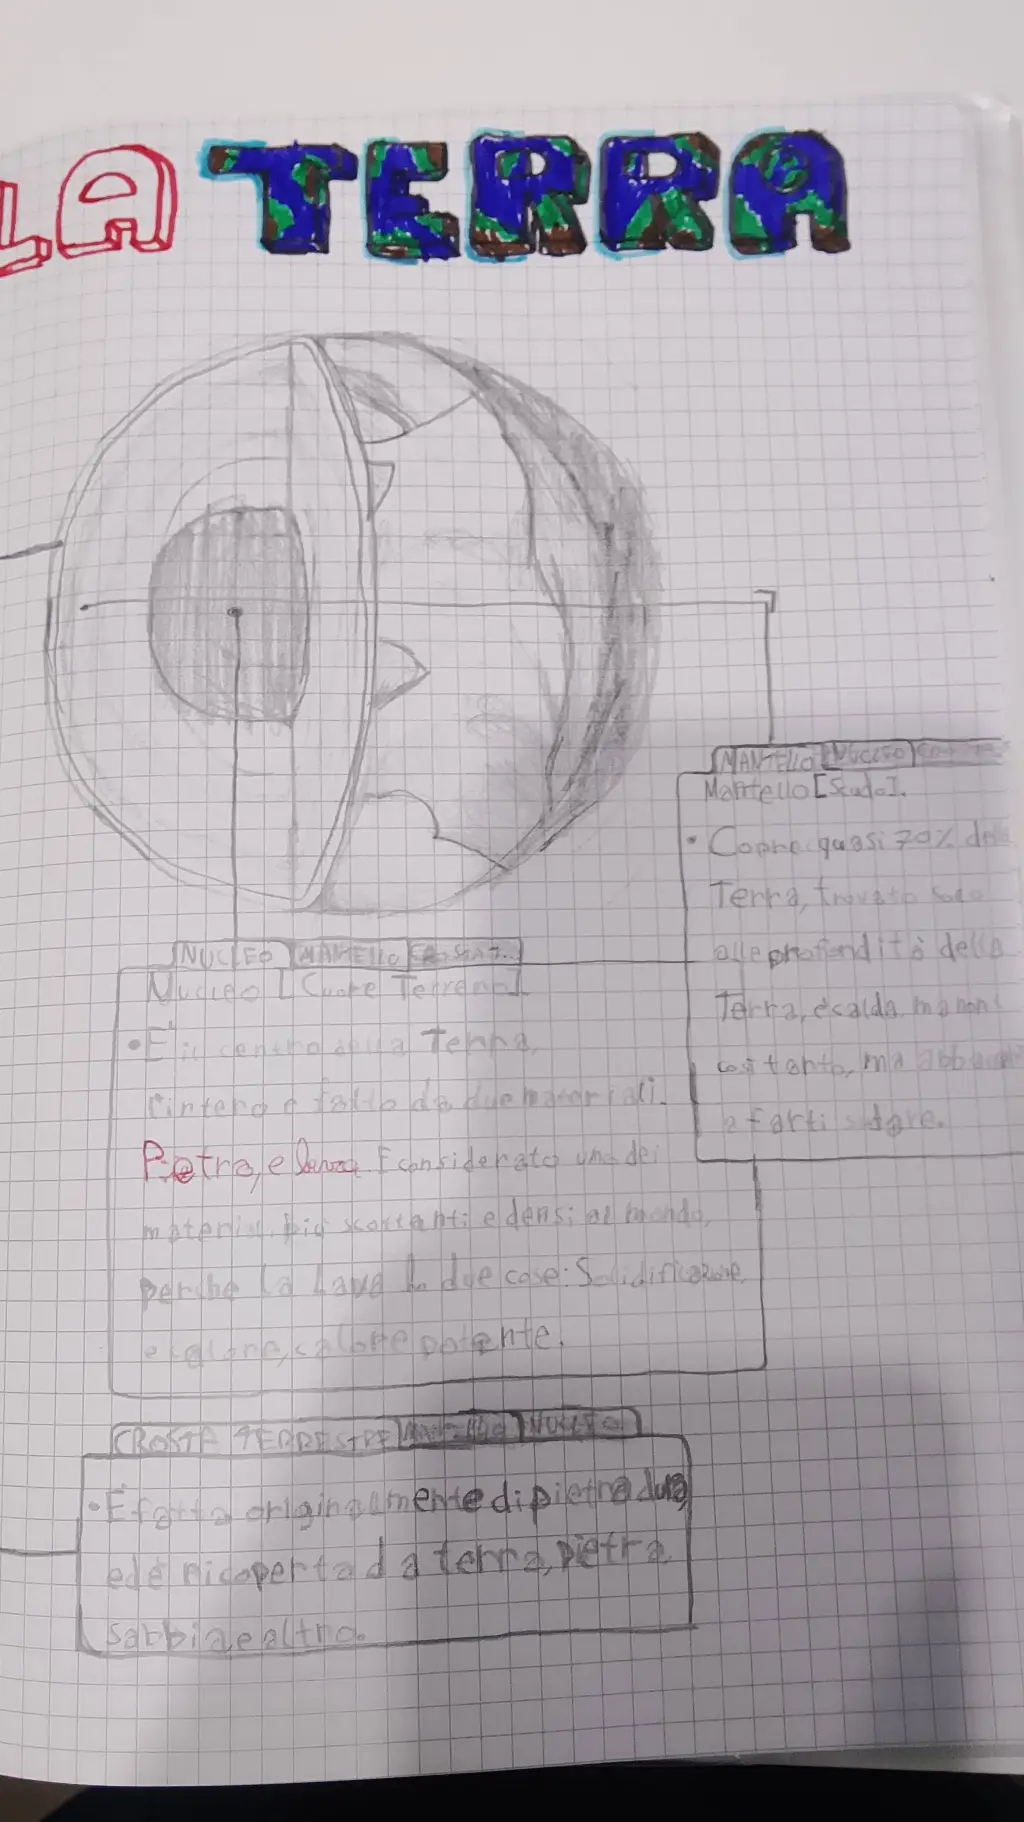 LA TERRA
MANTELLO NUCLEO
Mantello [Scudo].
• Copre quasi 70% della
Terra, trovato solo
alle profondità della
Terra, è calda, ma non
così tanto, ma
a farti sudare.
NUCLEO MANTELLO CROSTA T..
Nucleo [Cuore Terreno].
• È il centro della Terra,
l'intero è fatto da due materiali.
Pietra, e lava. È considerato uno dei
materiali più scottanti e densi al mondo,
perché la Lava ha due cose: Solidificazione,
e calore, calore potente.
CROSTA TERRESTRE MANTELLO NUCLEO
• È fatta originalmente di pietra dura,
ed è ricoperta da terra, pietra,
sabbia e altro.